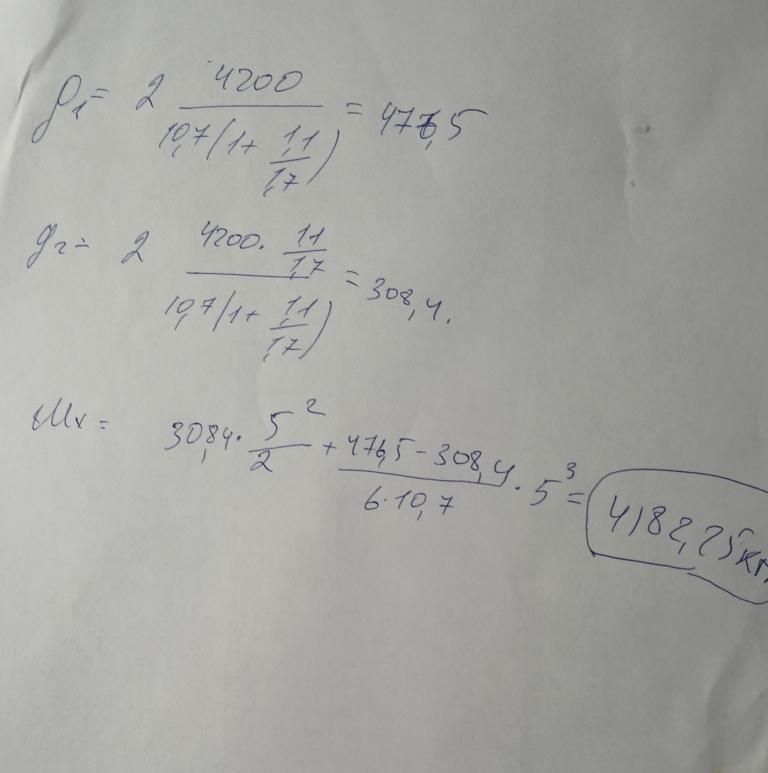 q₁ = 2 4200 / 10,7(1 + 1,1/1,7) = 476,5
q₂ = 2 4200 · 1,1/1,7 / 10,7(1 + 1,1/1,7) = 308,4.
Mx = 308,4 · 5²/2 + 476,5 - 308,4 / 6·10,7 · 5³ = 4182,25 кг